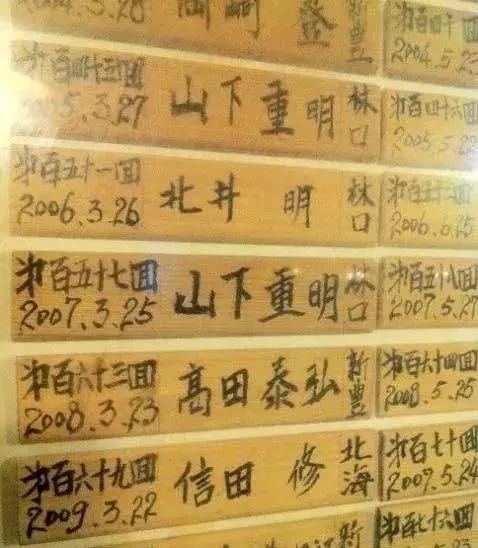 2004.3.28
新豊
第百四十五回
2005.3.27
山下重明
林口
第百五十一回
2006.3.26
北井 明
林口
第百五十七回
2007.3.25
山下重明
林口
第百六十三回
2008.3.23
高田泰弘
新豊
第百六十九回
2009.3.22
信田 修
北海
新
第百四十回
2004.5.23
第百四十六回
2005.5.22
第百五十二回
2006.6.25
第百五十八回
2007.5.27
第百六十四回
2008.5.25
第百七十回
2009.5.24
第百七十六回